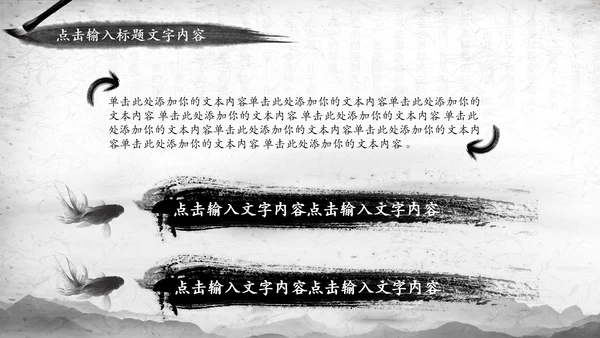 点击输入标题文字内容
单击此处添加你的文本内容单击此处添加你的文本内容单击此处添加你的
文本内容 单击此处添加你的文本内容 单击此处添加你的文本内容 单击此
处添加你的文本内容单击此处添加你的文本内容单击此处添加你的文本内
容单击此处添加你的文本内容 单击此处添加你的文本内容 。
点击输入文字内容点击输入文字内容
点击输入文字内容点击输入文字内容